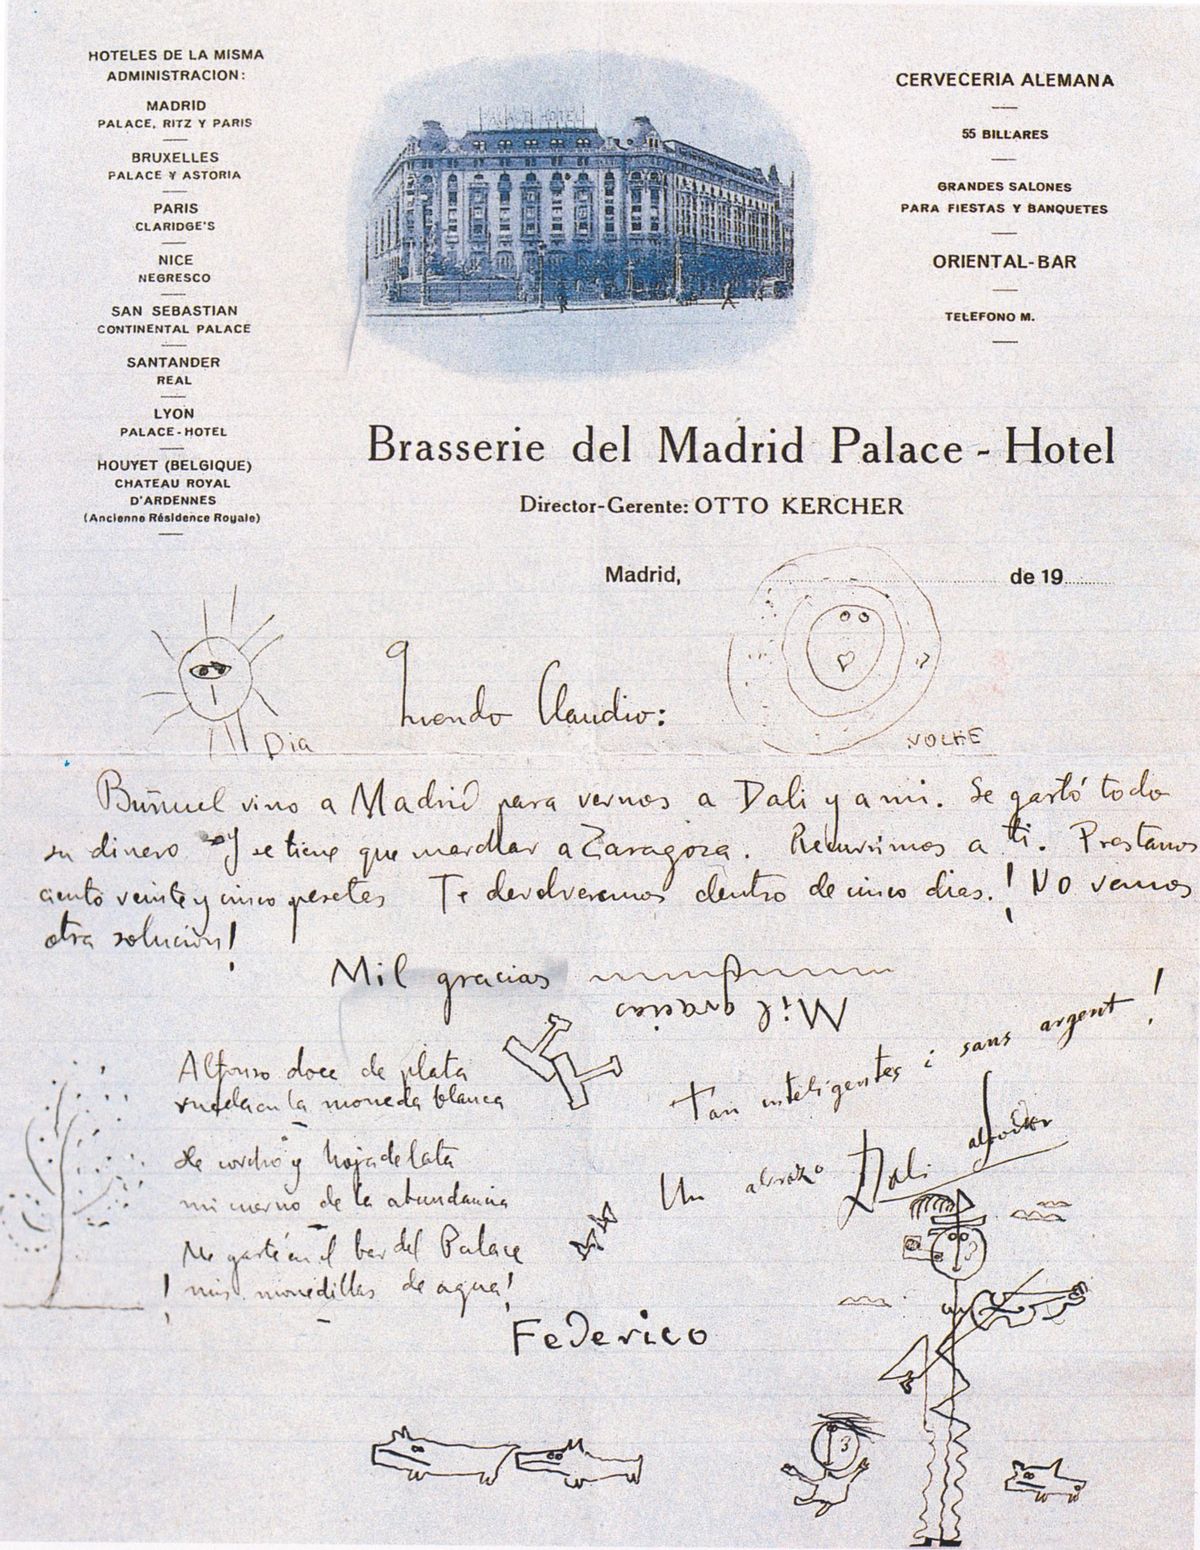 HOTELES DE LA MISMA
ADMINISTRACION:
MADRID
PALACE, RITZ Y PARIS
BRUXELLES
PALACE Y ASTORIA
PARIS
CLARIDGE'S
NICE
NEGRESCO
SAN SEBASTIAN
CONTINENTAL PALACE
SANTANDER
REAL
LYON
PALACE-HOTEL
HOUYET (BELGIQUE)
CHATEAU ROYAL
D'ARDENNES
(Ancienne Résidence Royale)
PALACE HOTEL
CERVECERIA ALEMANA
55 BILLARES
GRANDES SALONES
PARA FIESTAS Y BANQUETES
ORIENTAL-BAR
TELEFONO M.
Brasserie del Madrid Palace - Hotel
Director-Gerente: OTTO KERCHER
Madrid, de 19
Dia
Querido Claudio:
Buñuel vino a Madrid para vernos a Dali y a mi. Se gastó todo
su dinero y se tiene que marchar a Zaragoza. Recurrimos a ti. Prestanos
ciento veinte y cinco pesetas Te devolveremos dentro de cinco dias. ! No vemos
otra solución!
Mil gracias
Mil gracias
Alfonso doce de plata
rueda en la moneda blanca
De corcho y hoja de lata
mi cuerno de la abundancia
Me gasté en el bar del Palace
! mis monedillas de agua!
Federico
Tan inteligentes i sans argent!
Un abrazo Dali